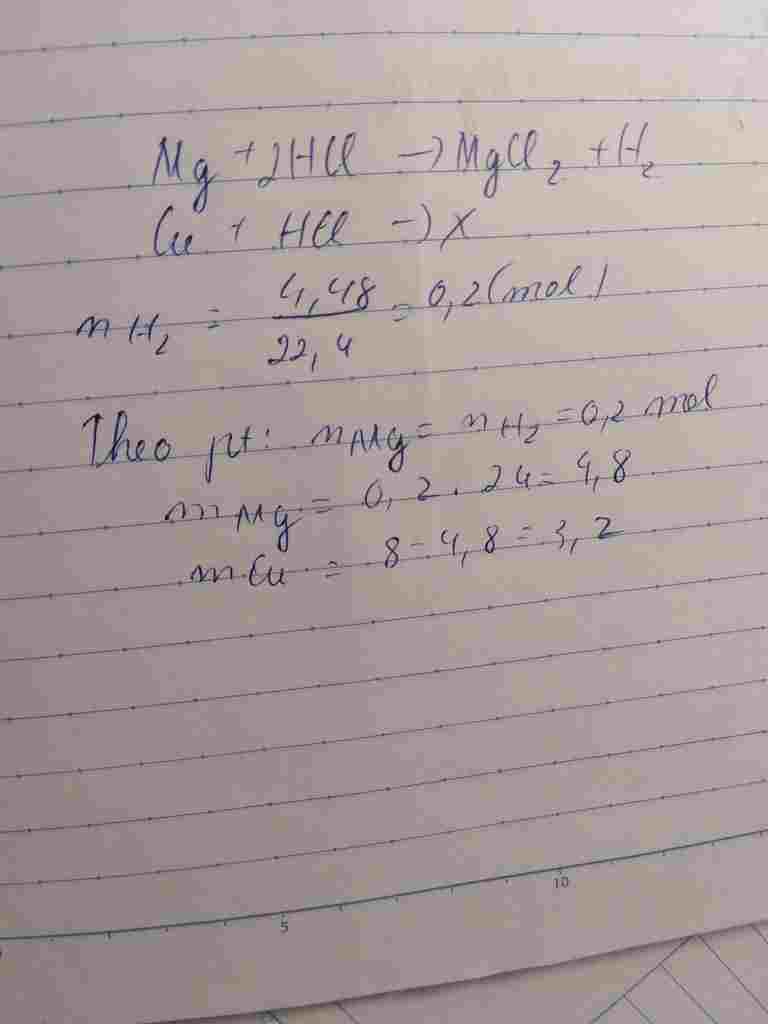 Mg + 2HCl → MgCl₂ + H₂
Cu + HCl → X
nH₂ = 4,48/22,4 = 0,2 (mol)
Theo pt: nMg = nH₂ = 0,2 mol
mMg = 0,2 . 24 = 4,8
mCu = 8 - 4,8 = 3,2
10
5